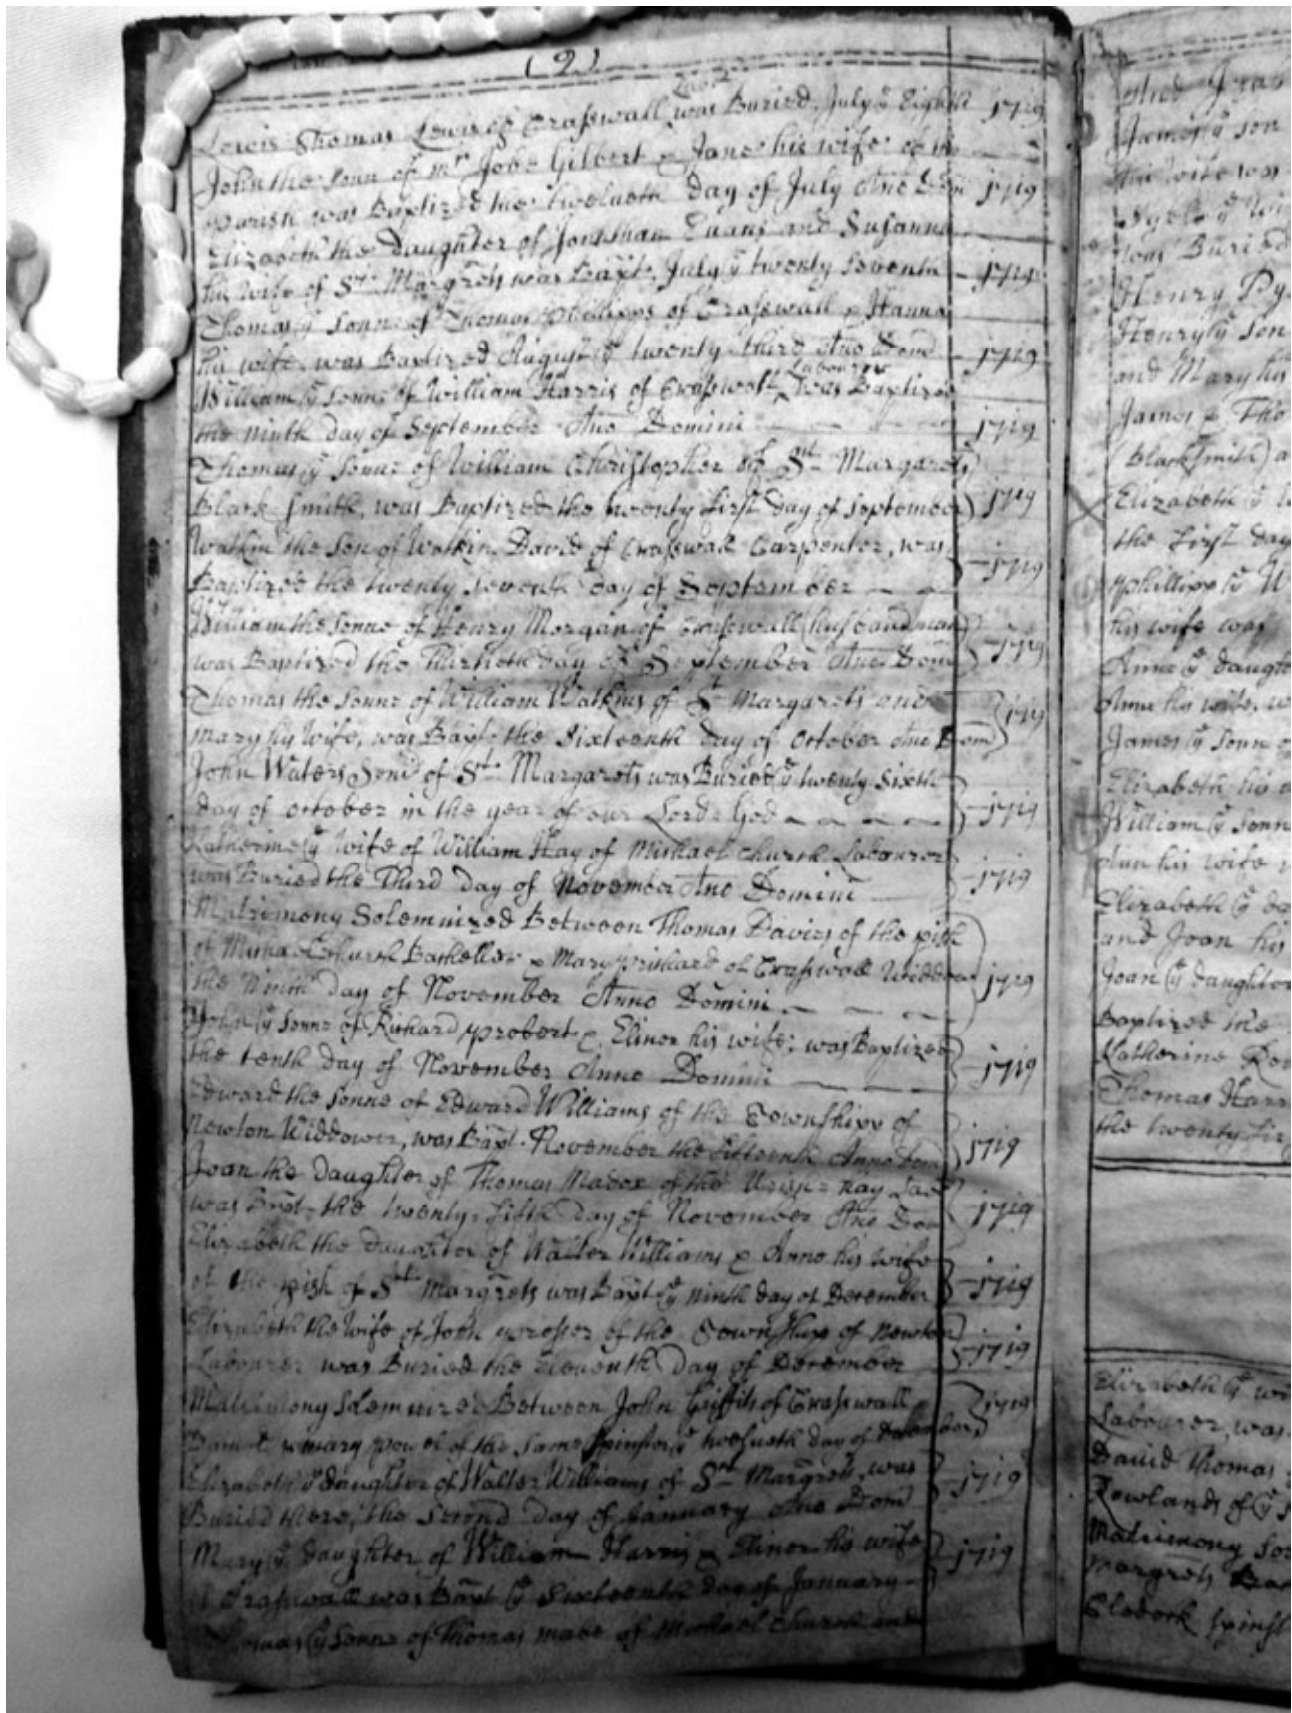 (2)
Labr
Lewis Thomas Lewis of Crasswall was Buried July ye Eighth 1719
John the sonn of mr Jobe Gilbert & Jane his wife of
parish was Baptized the twelueth day of July Ano Dom 1719
Elizabeth the Daughter of Jonathan Euans and Susanna
his wife of St Margrets was Bapt. July ye twenty seventh 1719
Thomas ye sonne of Thomas Phillipps of Crasswall & Hanna
his wife was Baptized August ye twenty third Ano Dom 1719
Labourer
William ye sonne of William Harris of Crasswall was Baptized
the Ninth day of September Ano Domini 1719
Thomas ye sonne of William Christopher of St Margarets
Black smith, was Baptized the twenty first day of September 1719
Watkin the son of Watkin David of Crasswall Carpenter, was
Baptized the twenty seventh day of September 1719
William the sonne of Henry Morgan of Crasswall husbandman
was Baptized the Thirtieth day of September Ano Dom 1719
Thomas the sonne of William Watkins of St Margarets and
mary his wife, was Bapt the Sixteenth day of October Ano Dom 1719
John Waters Seni of St Margarets was Buried ye twenty sixth
day of october in the year of our Lord God 1719
Katherine ye wife of William Hay of Michael church Labourer
was Buried the Third day of November Ano Domini 1719
Matrimony Solemnized Between Thomas Davies of the pish
of Michael church Batheller & Mary prichard of Crasswall Widdow 1719
the Ninth day of November Anno Domini
John ye sonne of Richard probert & Elinor his wife, was Baptized
the tenth day of November Anno Domini 1719
Edward the sonne of Edward Williams of the Townshipp of
Newton Widdower, was Bapt. November the fifteenth Anno Dom 1719
Joan the daughter of Thomas Madox of the
was Bapt. the twenty fifth day of November Ano Dom 1719
Elizabeth the daughter of Walter Williams & Anne his wife
of the pish of St Margrets was Bapt ye ninth day of December 1719
Elizabeth the wife of John prosser of the Townshipp of Newton
Labourer was Buried the Eleventh day of December 1719
Matrimony Solemnized Between John Griffits of Crasswall
& mary powel of the same Spinster ye twelueth day of December 1719
Elizabeth ye daughter of Walter Williams of St Margrets, was
Buried there, the second day of January Ano Dom 1719
Mary ye daughter of William Harris & Elinor his wife
of Crasswall was Bapt ye Sixteenth day of January 1719
Thomas ye sonne of Thomas made of Michael church and
James ye son
his wife was
was Buried
Henry
Henry ye son
and Mary his
James & Tho
(Blacksmith) a
Elizabeth ye
the First day
phillipp ye
his wife was
Anne ye daught
Ann his wife, w
James ye sonn o
Elizabeth his
William ye sonn
Ann his wife
Elizabeth ye da
and Joan his
Joan ye daughter
Baptized the
Katherine
Thomas Harr
the twenty fir
Elizabeth ye wi
Labourer, was
David Thomas
Rowlands of ye
Matrimony So
Margrets Ba
Clodock spinst